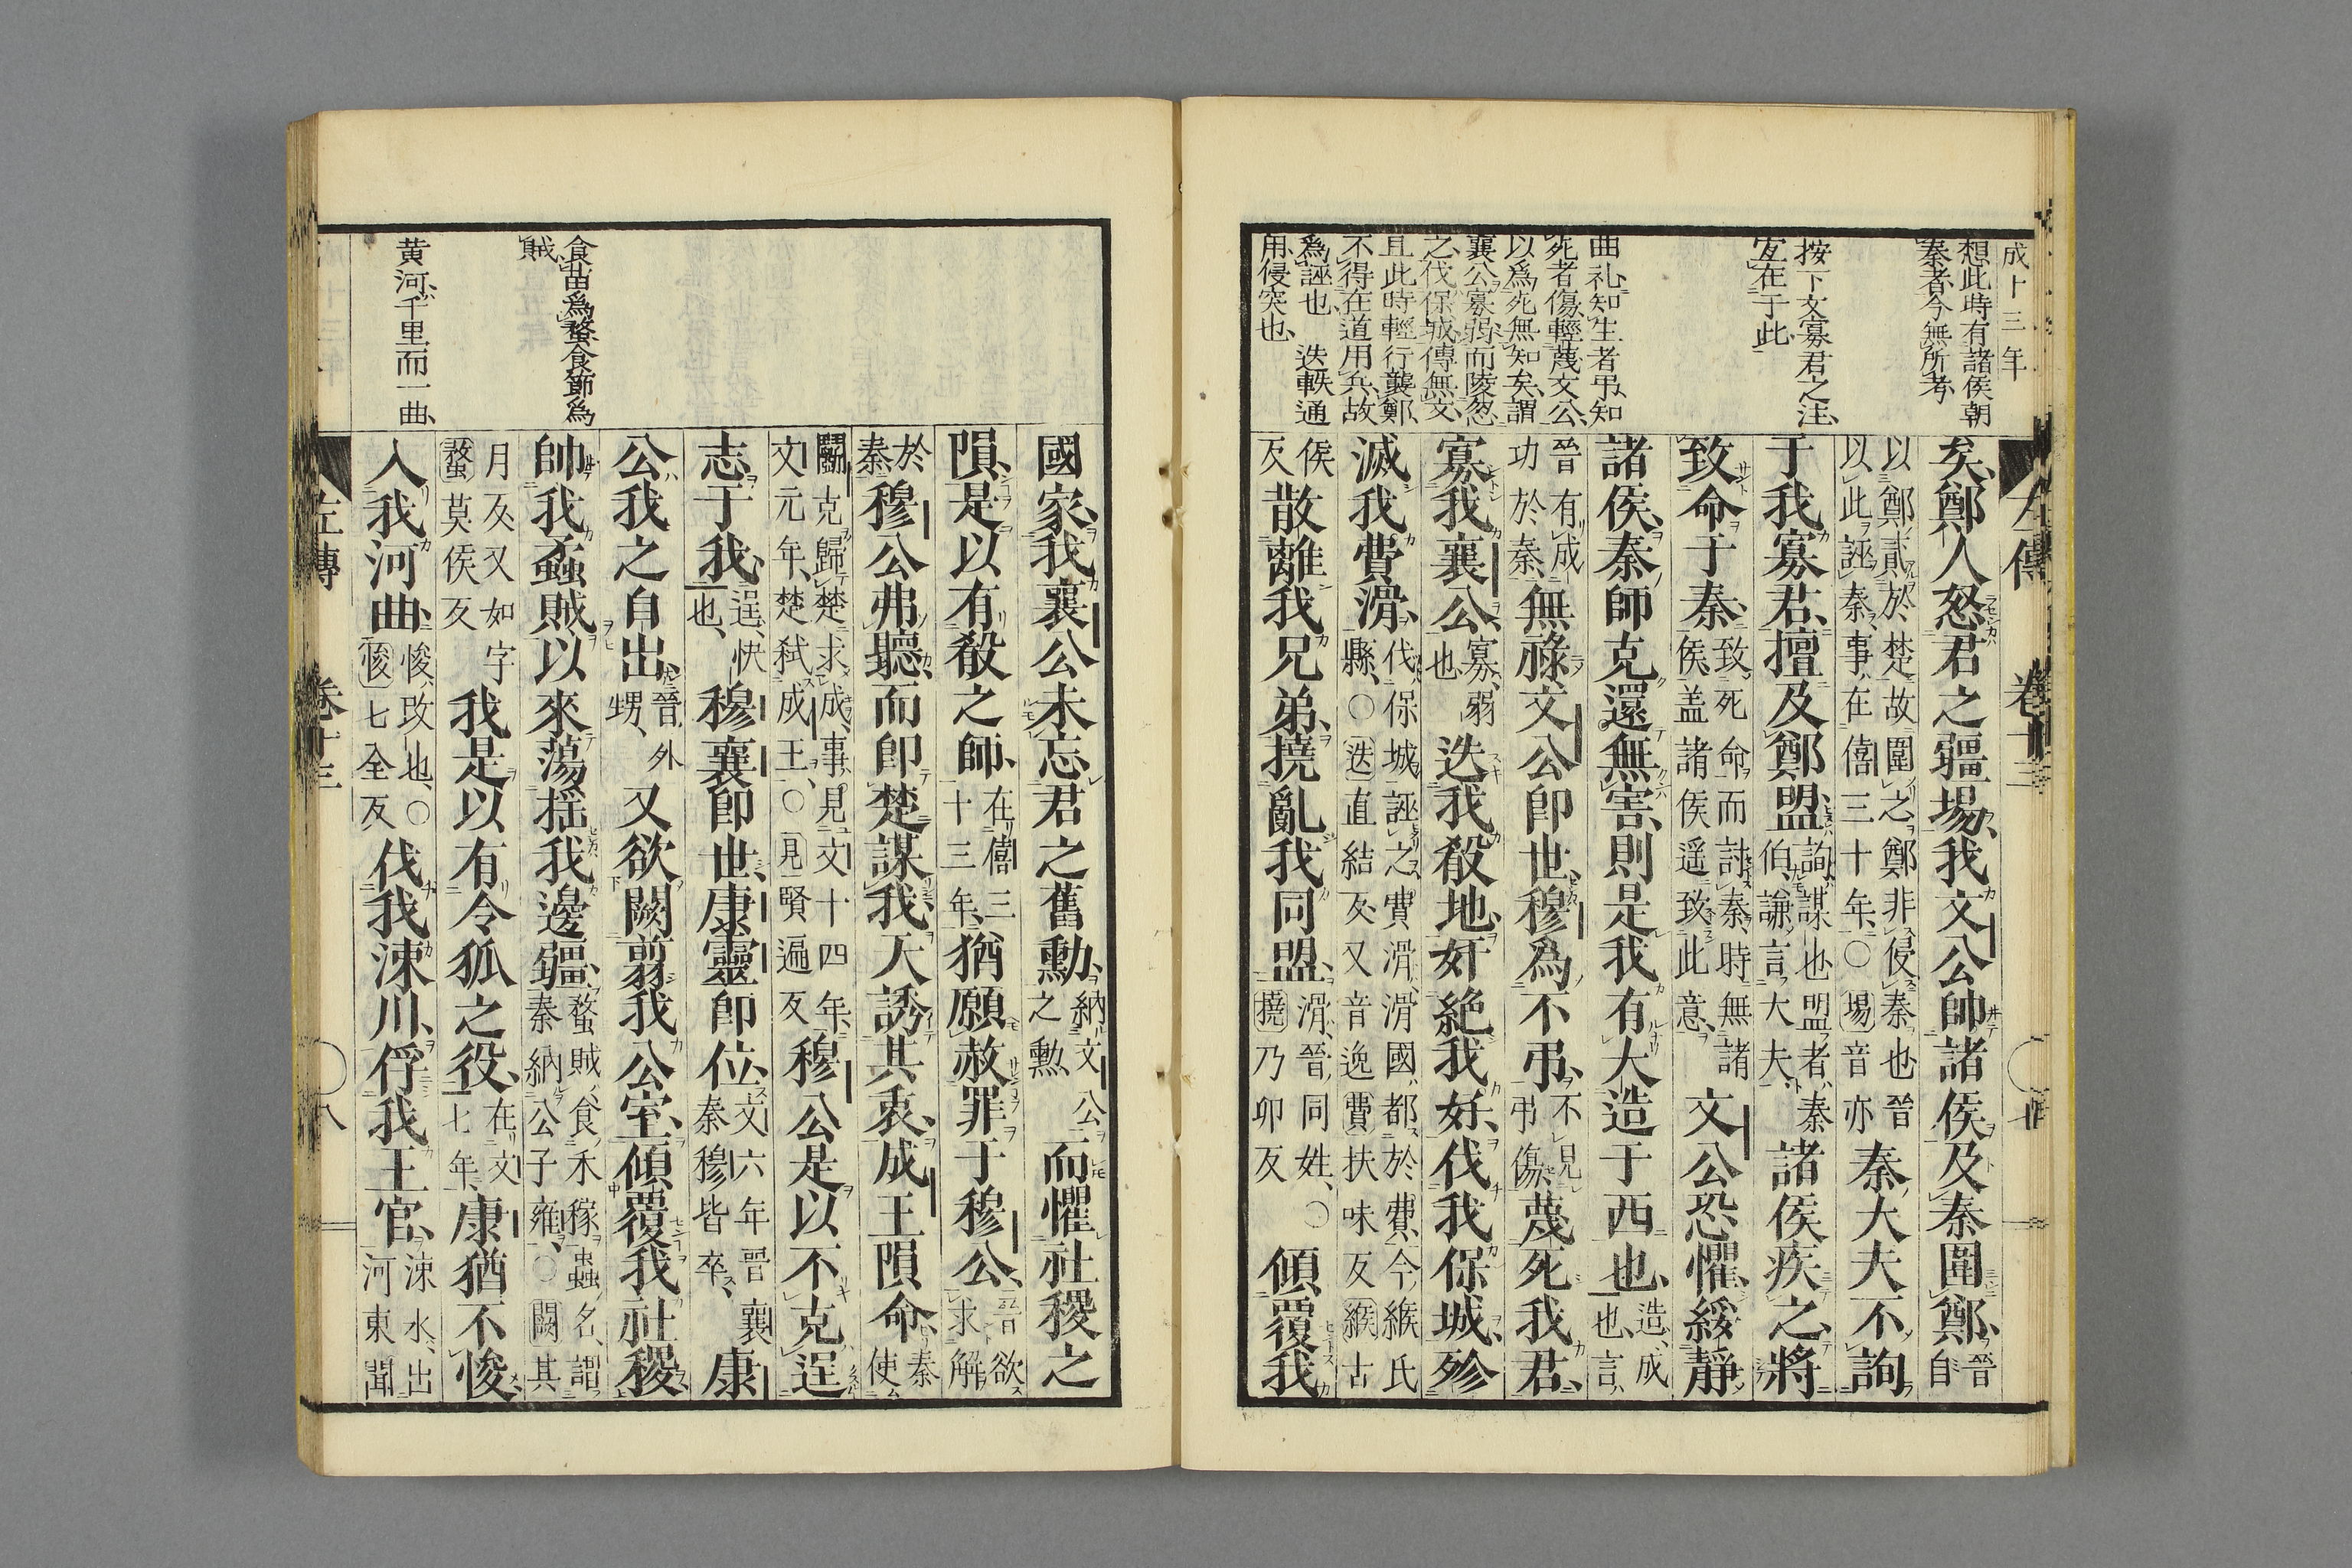 成十三年
想此時有諸侯朝
秦者今無所考
按下文寡君之注
宐在于此
曲礼知生者弔知
死者傷輕蔑文公
以爲死無知矣謂
襄公寡弱而陵忽
之伐保城傳無文
且此時輕行襲鄭
不得在道用兵故
爲誣也 迭軼通
用侵突也
左傳 卷十三
矣鄭人怒君之疆場我文公帥諸侯及秦圍鄭晉自
以鄭貳於楚故圍之鄭非侵秦也晉以此誣秦事在僖三十年〇場音亦秦大夫不詢
于我寡君擅及鄭盟詢謀也盟者秦伯謙言大夫諸侯疾之將
致命于秦致死命而討秦時無諸侯盖諸侯遥致此意文公恐懼綏靜
諸侯秦師克還無害則是我有大造于西也造成也言
晉有成功於秦無祿文公卽世穆爲不弔不見弔傷蔑死我君
寡我襄公寡弱也迭我殽地奸絶我好伐我保城殄
滅我費滑伐保城誣之費滑滑國都於費今緱氏縣〇迭直結反又音逸費扶味反緱古
侯反散離我兄弟撓亂我同盟滑晉同姓〇撓乃卯反傾覆我
食苗爲蟊食節爲
賊
黄河千里而一曲
國家我襄公未忘君之舊勳納文公之勲而懼社稷之
隕是以有殽之師在僖三十三年猶願赦罪于穆公晉欲求解
於秦穆公弗聽而卽楚謀我天誘其衷成王隕命秦使
鬭克歸楚求成事見文十四年文元年楚弑成王〇見賢遍反穆公是以不克逞
志于我逞快也穆襄卽世康靈卽位文六年晉襄秦穆皆卒康
公我之自出晉外甥又欲闕翦我公室傾覆我社稷
帥我蟊賊以來蕩揺我邊疆蟊賊食禾稼蟲名謂秦納公子雍〇闕其
月反又如字蟊莫侯反我是以有令狐之役在文七年康猶不悛
入我河曲悛攺也〇悛七全反伐我涑川俘我王官涑水出河東聞
左傳 卷十三 八